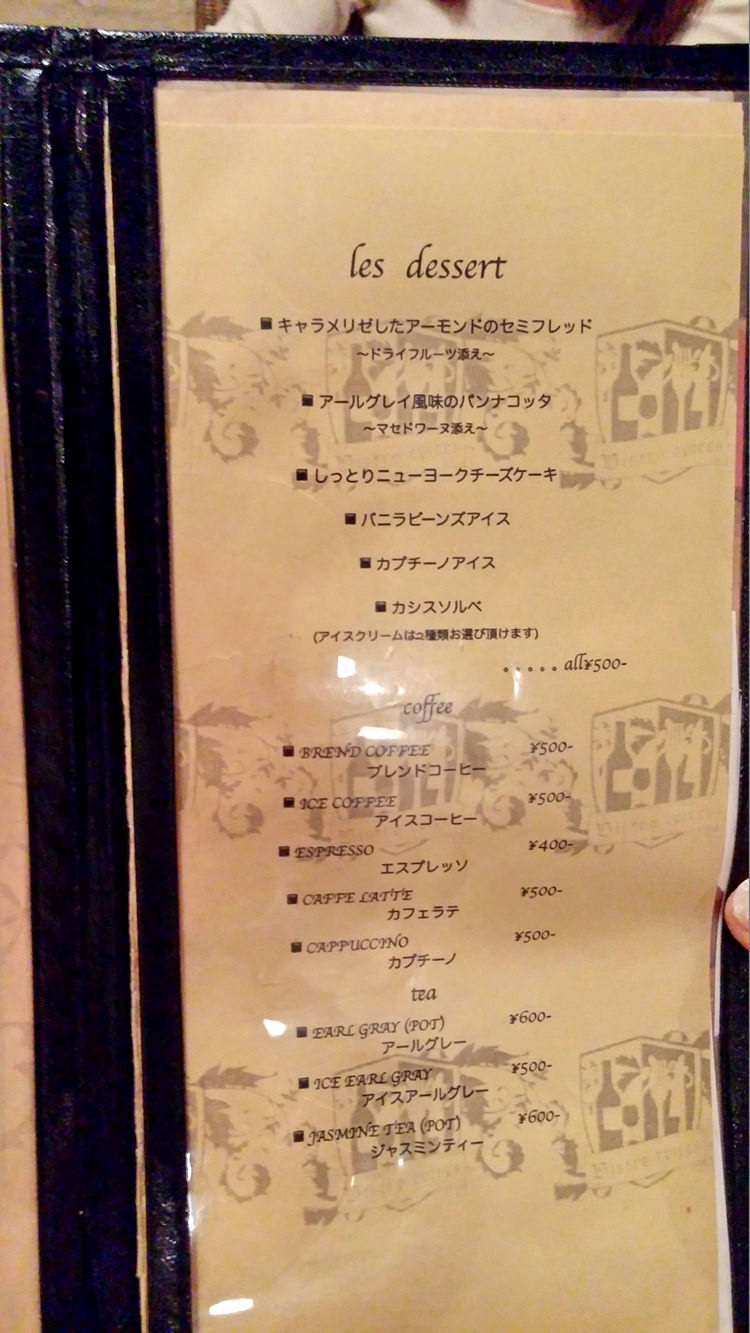 les dessert
■ キャラメリゼしたアーモンドのセミフレッド
～ドライフルーツ添え～
■ アールグレイ風味のパンナコッタ
～マセドワーヌ添え～
■ しっとりニューヨークチーズケーキ
■ バニラビーンズアイス
■ カプチーノアイス
■ カシスソルベ
(アイスクリームは2種類お選び頂けます)
。。。。。all¥500-
coffee
■ BREND COFFEE ¥500-
ブレンドコーヒー
■ ICE COFFEE ¥500-
アイスコーヒー
■ ESPRESSO ¥400-
エスプレッソ
■ CAFFE LATTE ¥500-
カフェラテ
■ CAPPUCCINO ¥500-
カプチーノ
tea
■ EARL GRAY (POT) ¥600-
アールグレー
■ ICE EARL GRAY ¥500-
アイスアールグレー
■ JASMINE TEA (POT) ¥600-
ジャスミンティー